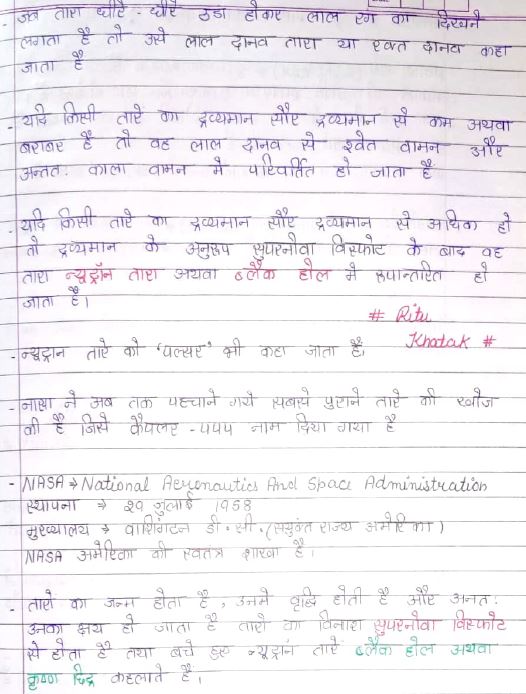 जब तारा धीरे - धीरे ठंडा होकर लाल रंग का दिखने
लगता है तो उसे लाल दानव तारा या रक्त दानव कहा
जाता है
- यदि किसी तारे का द्रव्यमान सौर द्रव्यमान से कम अथवा
बराबर है तो वह लाल दानव से श्वेत वामन और
अन्ततः काला वामन में परिवर्तित हो जाता है
- यदि किसी तारे का द्रव्यमान सौर द्रव्यमान से अधिक हो
तो द्रव्यमान के अनुरूप सुपरनोवा विस्फोट के बाद वह
तारा न्यूट्रॉन तारा अथवा ब्लैक होल में रूपान्तरित हो
जाता है।
# Ritu
Khatak #
- न्यूट्रान तारे को 'पल्सर' भी कहा जाता है।
- नासा ने अब तक पहचाने गये सबसे पुराने तारे की खोज
की है जिसे कैपलर - ५५५ नाम दिया गया है
- NASA → National Aeronautics And Space Administration
स्थापना → २९ जुलाई 1958
मुख्यालय → वाशिंगटन डी.सी. (सयुंक्त राज्य अमेरिका)
NASA अमेरिका की स्वतंत्र शाखा है।
- तारों का जन्म होता है, उनमें वृद्धि होती है और अनतः
उनका क्षय हो जाता है तारों का विनाश सुपरनोवा विस्फोट
से होता है तथा बचे हुए न्यूट्रॉन तारे ब्लैक होल अथवा
कृष्ण छिद्र कहलाते हैं।